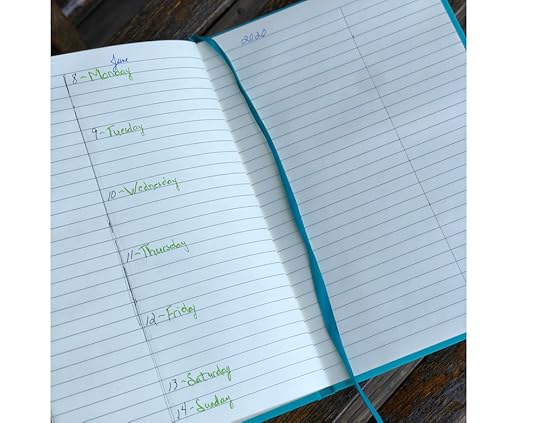 June
8~Monday
9~Tuesday
10~Wednesday
11~Thursday
12~Friday
13~Saturday
14~Sunday
2020